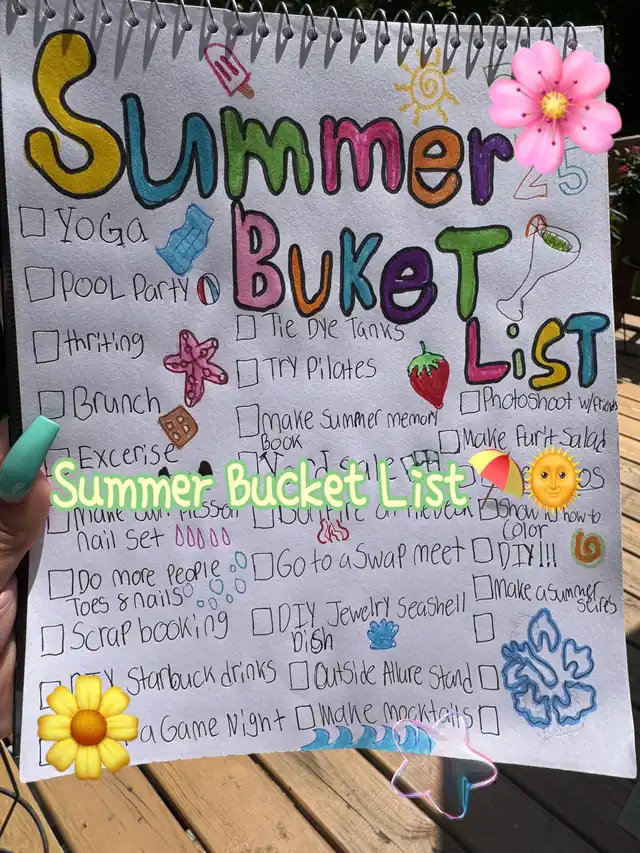 Summer
25
BUKET
LiST
YOGA
POOL Party
thriting
Brunch
Excerise
nail Set
Do more People
Toes & nails
Scrap booking
Starbuck drinks
a Game Night
Tie Dye Tanks
TRY Pilates
make summer memory
BOOK
Go to a Swap meet
DIY Jewelry Seashell
Dish
Outside Allure Stand
Make mocktails
Photoshoot w/friends
Make Furit Salad
Show is how to
Color
DIY!!!
Make a summer
Summer Bucket List